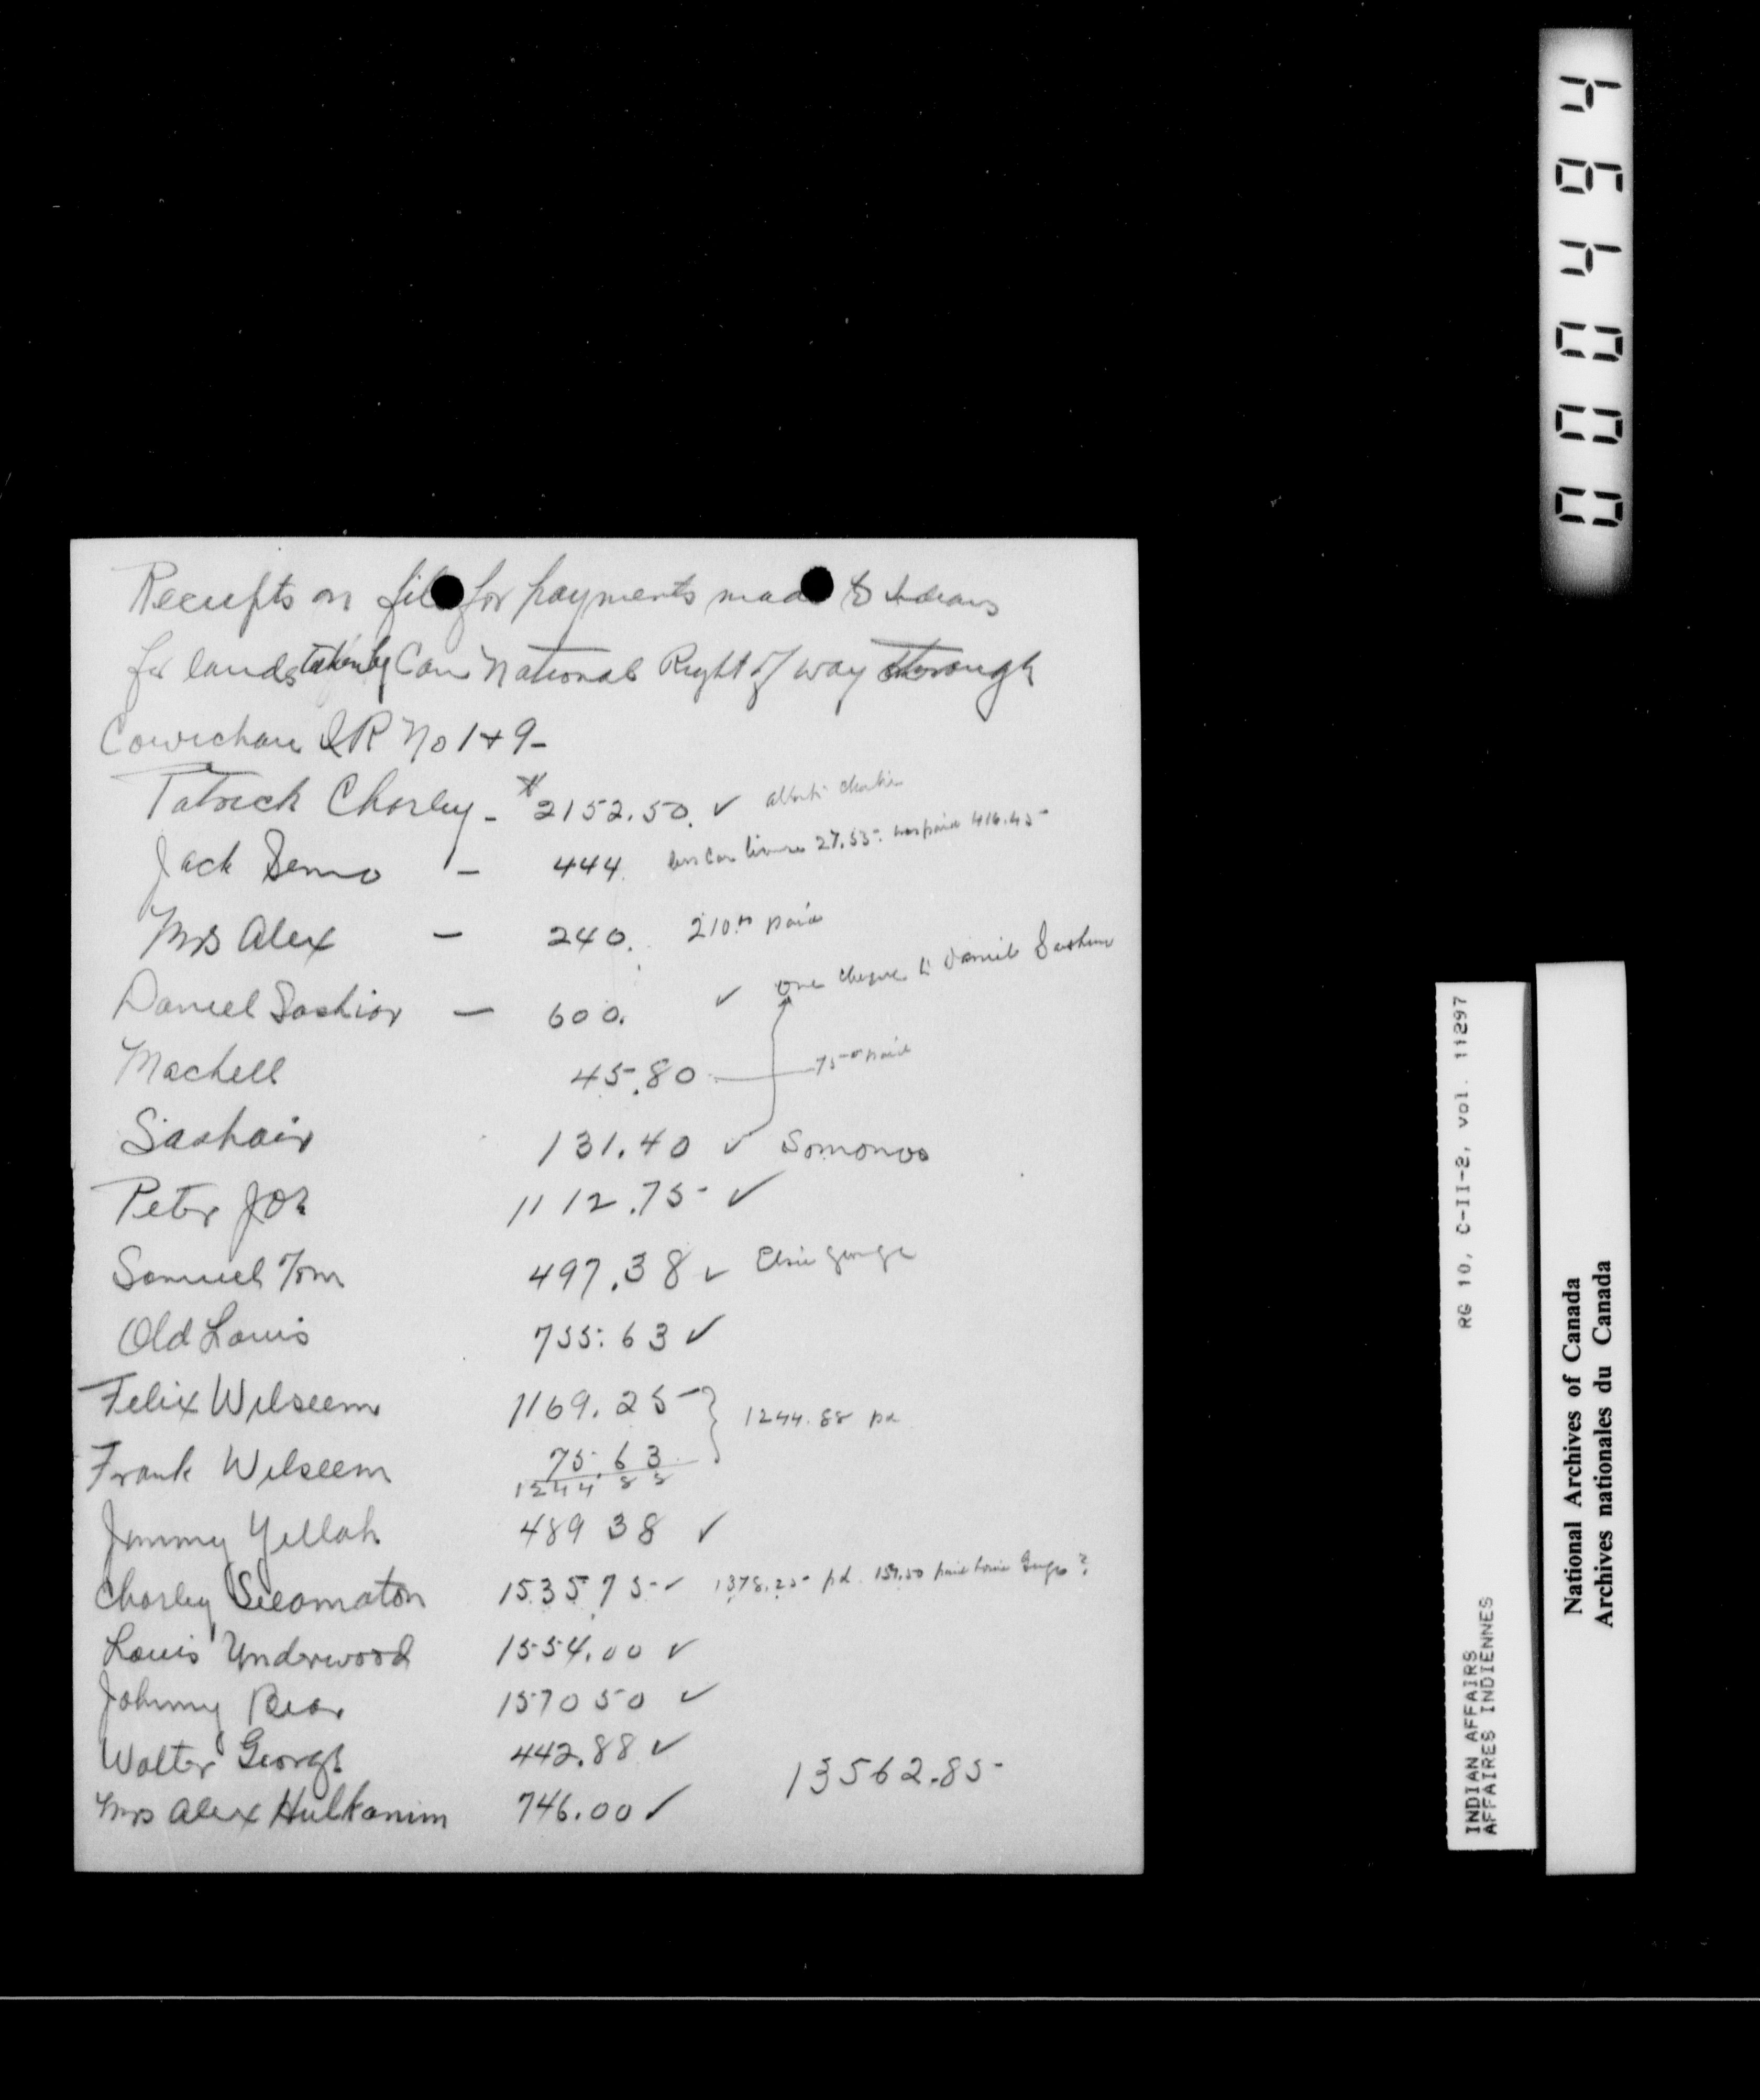 Receipts on file for payments made to Indians
for lands taken by Can National Right of way through
Cowichan IR No 1 + 9 -
Patrick Charley - 2152.50. ✓
Jack Semo - 444. less Car license 27.55. was paid 416.45
Mrs Alex - 240. 210.00 paid
Daniel Sashior - 600. ✓ one cheque to Daniel
Machell 45.80 75 paid
Sashair 131.40 ✓ Somonos
Peter Joe 1112.75 ✓
Samuel Tom 497.38 ✓ Elsie George
Old Louis 755.63 ✓
Felix Wilseem 1169.25 } 1244.88 pd
Frank Wilseem 75.63
1244 88
Jimmy Yellah 489 38 ✓
Charley Seeamaton 1535.75 ✓ 1378.25 pd. 157.50 paid Louie ?
Louis Underwood 1554.00 ✓
Johnny Bear 1570 50 ✓
Walter George 442.88 ✓
13562.85
Mrs Alex Hulkanim 746.00 ✓
000464
RG 10, C-II-2, vol. 11297
INDIAN AFFAIRS
AFFAIRES INDIENNES
National Archives of Canada
Archives nationales du Canada